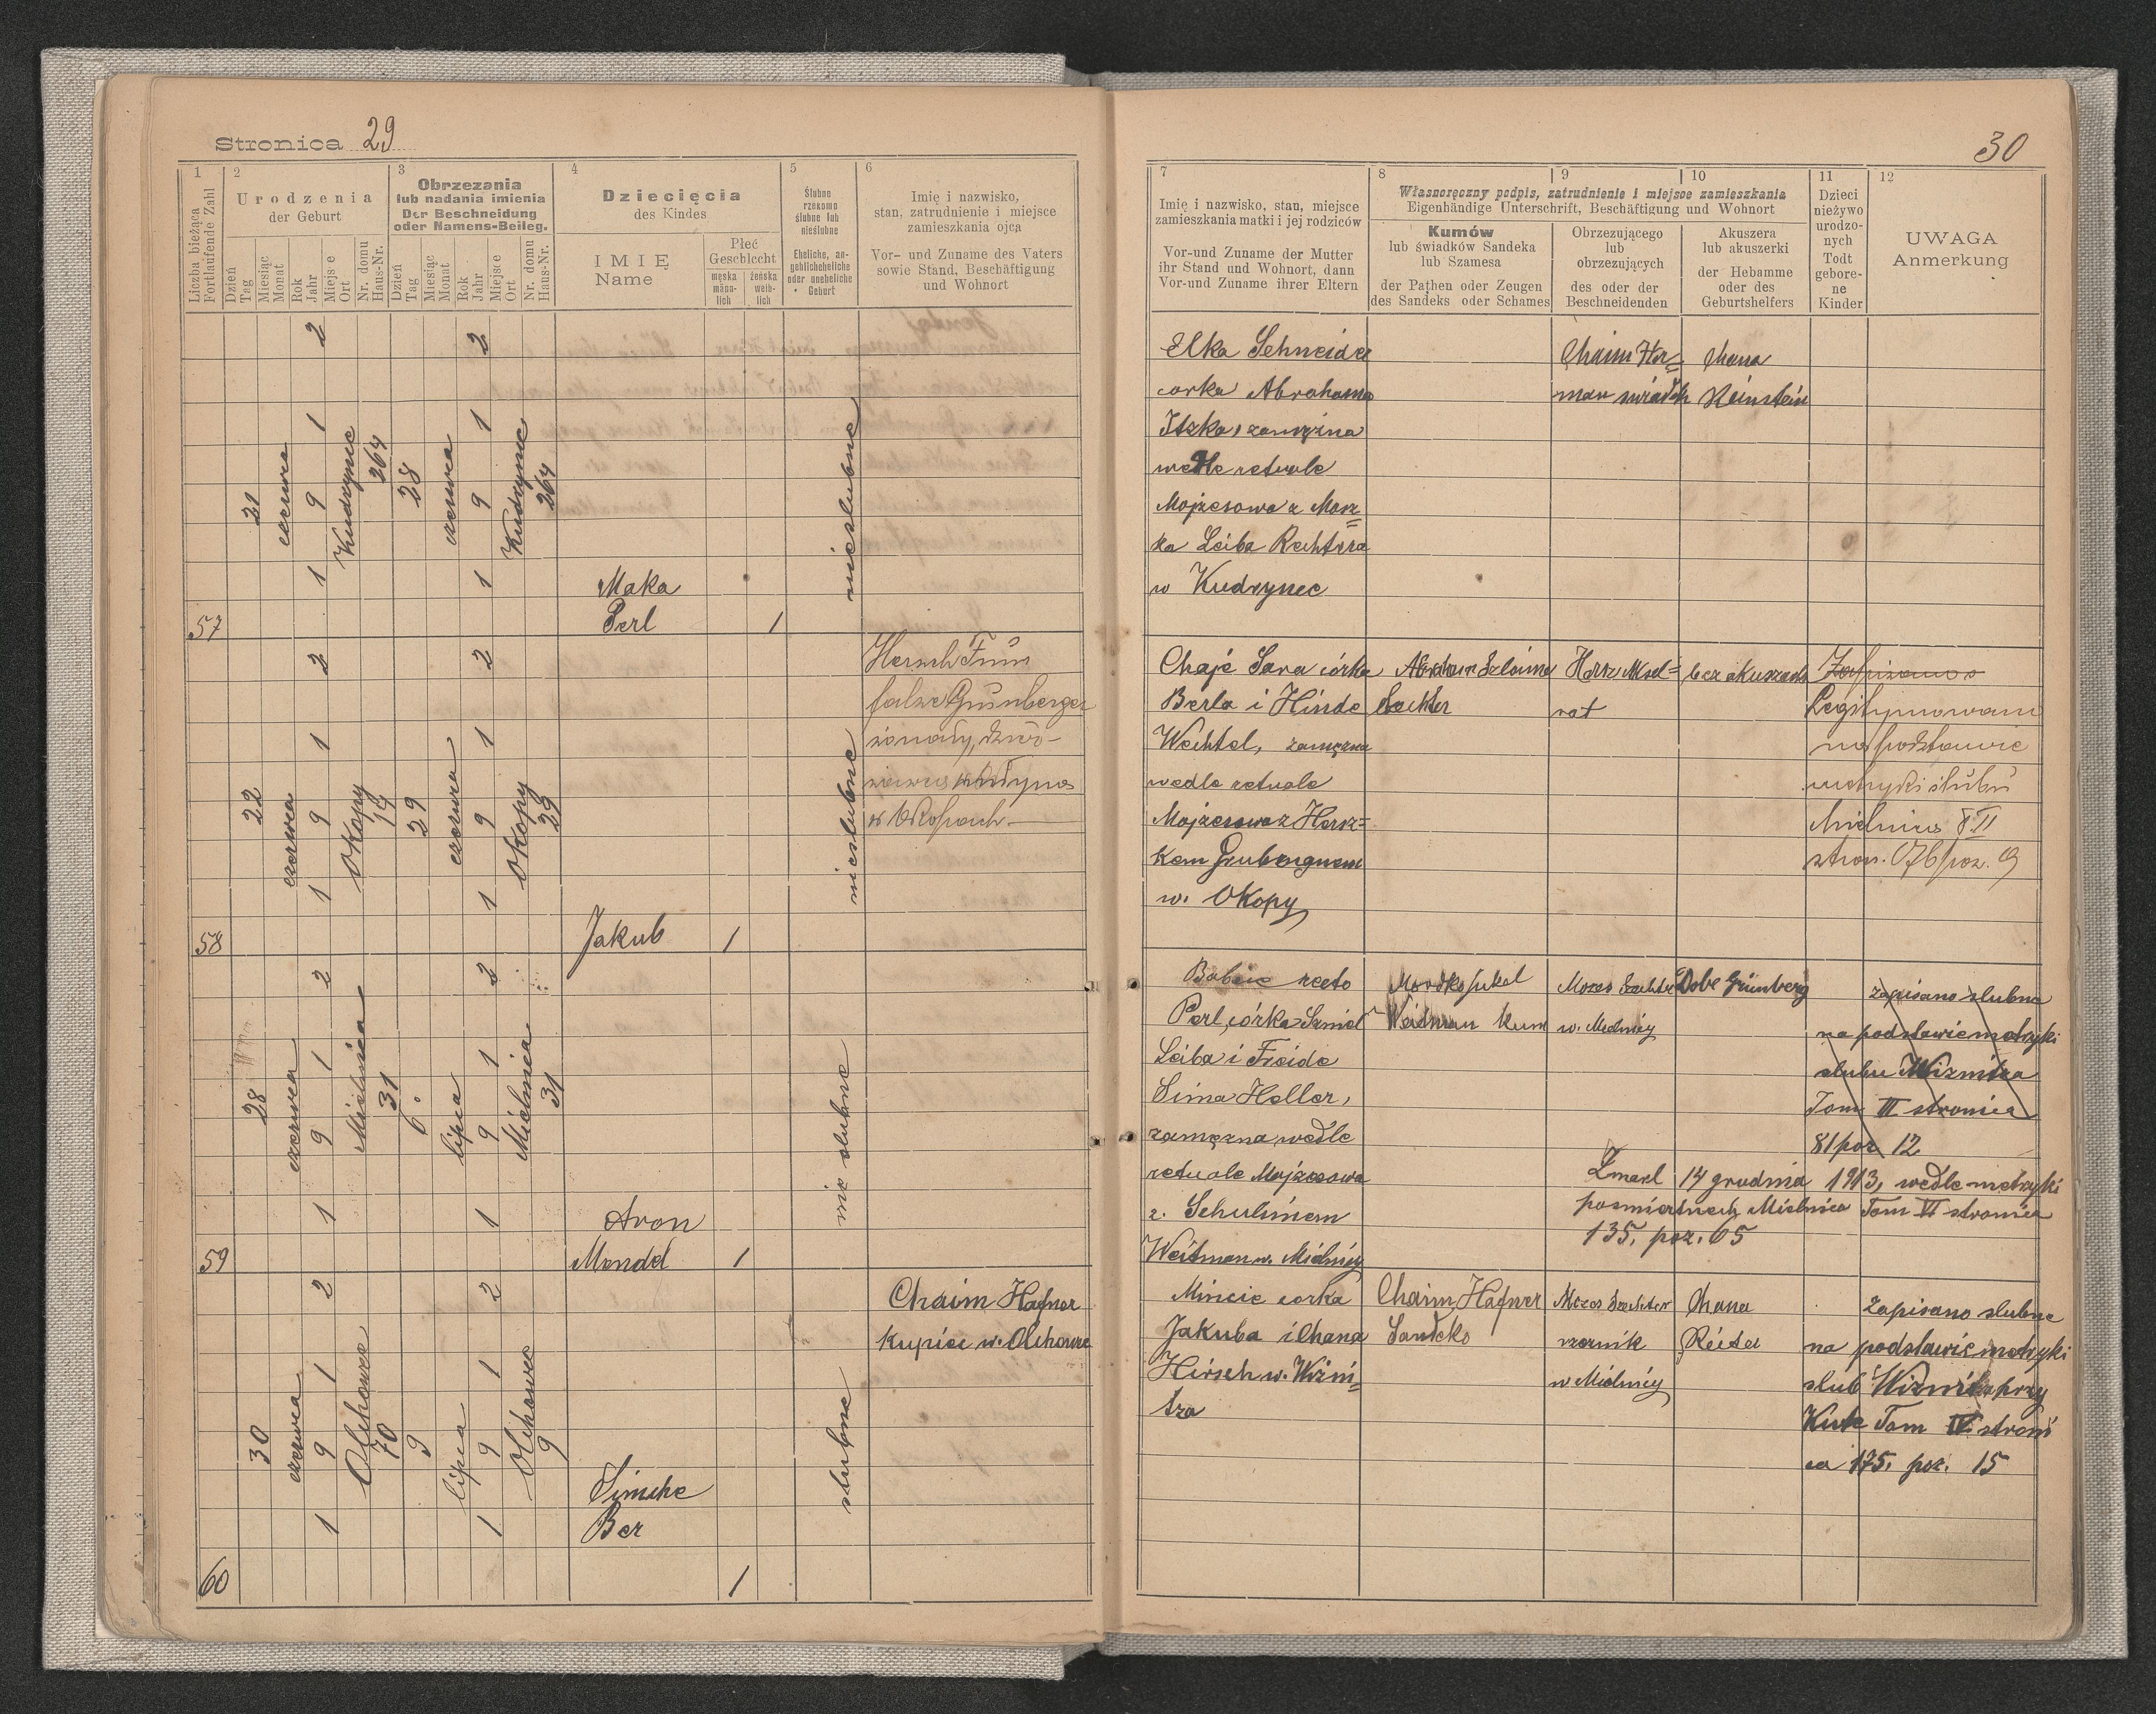 Stronica 29
30
1
2
3
4
5
6
Liczba bieżąca
Fortlaufende Zahl
Urodzenia
der Geburt
Dzień
Tag
Miesiąc
Monat
Rok
Jahr
Miejsce
Ort
Nr. domu
Haus-Nr.
Obrzezania
lub nadania imienia
Der Beschneidung
oder Namens-Beileg.
Dzień
Tag
Miesiąc
Monat
Rok
Jahr
Miejsce
Ort
Nr. domu
Haus-Nr.
Dziecięcia
des Kindes
IMIĘ
Name
Płeć
Geschlecht
męska
männ-
lich
żeńska
weib-
lich
Ślubne
rzekomo
ślubne lub
nieślubne
Eheliche, an-
geblicheheliche
oder uneheliche
Geburt
Imię i nazwisko,
stan, zatrudnienie i miejsce
zamieszkania ojca
Vor- und Zuname des Vaters
sowie Stand, Beschäftigung
und Wohnort
7
8
9
10
11
12
Imię i nazwisko, stan, miejsce
zamieszkania matki i jej rodziców
Vor-und Zuname der Mutter
ihr Stand und Wohnort, dann
Vor-und Zuname ihrer Eltern
Własnoręczny podpis, zatrudnienie i miejsce zamieszkania
Eigenhändige Unterschrift, Beschäftigung und Wohnort
Kumów
lub świadków Sandeka
lub Szamesa
der Pathen oder Zeugen
des Sandeks oder Schames
Obrzezującego
lub
obrzezujących
des oder der
Beschneidenden
Akuszera
lub akuszerki
der Hebamme
oder des
Geburtshelfers
Dzieci
nieżywo
urodzo-
nych
Todt
gebore-
ne
Kinder
UWAGA
Anmerkung
57
21
czerwca
1 9 1 2
Kudrynce
264
28
czerwca
1 9 1 2
Kudrynce
264
Maka
Perl
1
nieslubne
Elka Schneider
corka Abrahama
Itzka, zamężna
wedle retuale
Mojżesowa z Mosz=
ka Leiba Rechtera
w Kudrynec
Chaim Her=
man swiadek
Chana
Reinstein
58
22
czerwca
1 9 1 2
Okopy
19
29
czerwca
1 9 1 2
Okopy
29
Jakub
1
nieslubne
Hersch
false Grünberger
w Okopach
Chaje Sara córka
Berla i Hinde
Wechtel, zamężna
wedle retuale
Mojżesowa z Hersz=
kem
w. Okopy
Abraham Szloima
Szechter
Hersz
rat
bez akuszerki
Zapisano
Legitymowani
na podstawie
metryki ślubu
Mielnica T. II
stron. 076 poz. 9
59
28
czerwca
1 9 1 2
Mielnica
31
6
lipca
1 9 1 2
Mielnica
31
Aron
Mendel
1
nie slubne
Babcie recto
Perl, córka Szmiel
Leiba i Freide
Sima Heller,
zamężna wedle
retuale Mojżesowa
z. Schulimem
Weitman w. Mielnicy
Mordko
Weidman kum
Mozes Szechter
w. Mielnicy
Dobe Grünberg
zapisano slubne
na podstawie metryki
slubu Wiznitza
Tom III stronica
81 poz 12
Zmarl 14 grudnia 1913, wedle metryki
posmiertnych Mielnica Tom VI stronica
135, poz. 65
60
30
czerwca
1 9 1 2
Olchowce
70
9
lipca
1 9 1 2
Olchowce
9
Simche
Ber
1
slubne
Chaim Hafner
kupiec w. Olchowce
Mincie corka
Jakuba i Chana
Hirsch w. Wizni=
tza
Chaim Hafner
Sandeko
Mozes Szechter
rzeznik
w Mielnicy
Chana
Reiter
zapisano slubne
na podstawie metryki
slub Wiznitz przy
Kute Tom IV stroni
ca 175, poz. 15